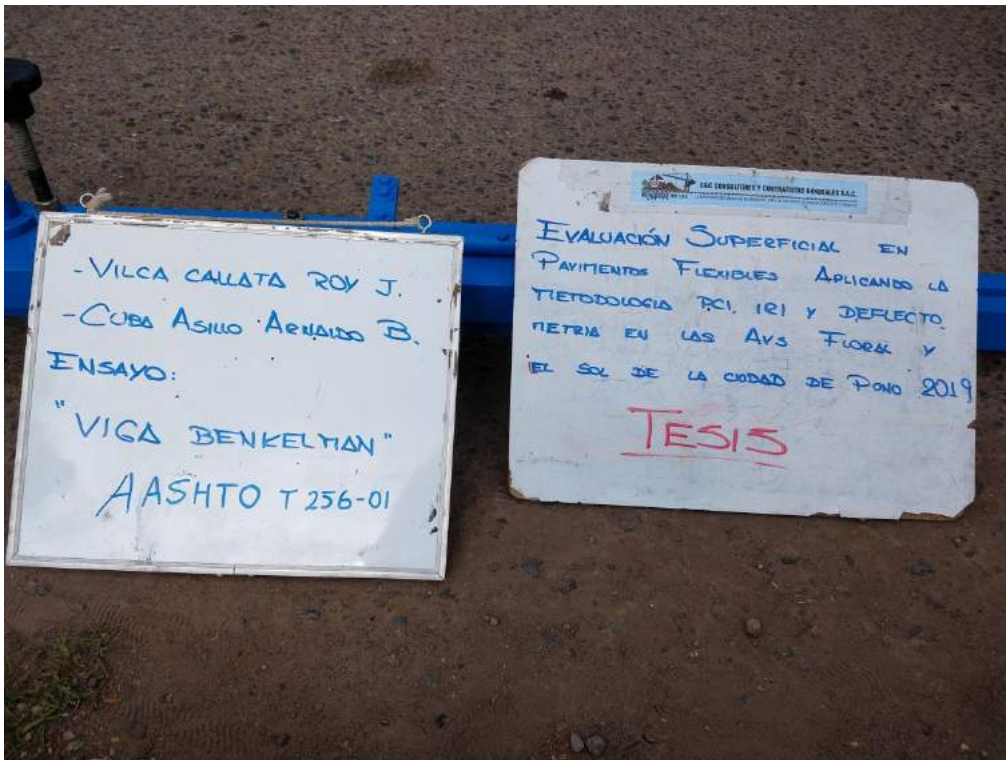 - VILCA CALLATA ROY J.
- CUBA ASILLO ARNALDO B.
ENSAYO:
"VIGA BENKELMAN"
AASHTO T 256-01
CONSULTORES Y CONTRATISTAS GENERALES S.A.C.
EVALUACIÓN SUPERFICIAL EN
PAVIMENTOS FLEXIBLES APLICANDO LA
METODOLOGIA P.C.I. IRI Y DEFLECTO.
METRIA EN LAS AVS FLORAL Y
EL SOL DE LA CIUDAD DE PUNO 2019
TESIS